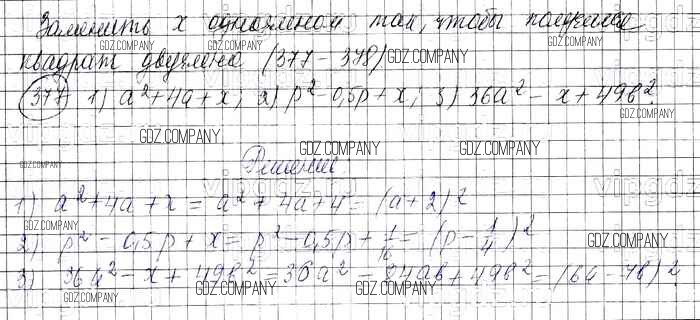 Заменить x одночленом так, чтобы получился
квадрат двучлена (377 – 378)
377 1) a² + 4a + x; 2) p² – 0,5p + x; 3) 36a² – x + 49b².
Решение
1) a² + 4a + x = a² + 4a + 4 = (a + 2)²
2) p² – 0,5p + x = p² – 0,5p + 1/16 = (p – 1/4)²
3) 36a² – x + 49b² = 36a² – 84ab + 49b² = (6a – 7b)²
GDZ.COMPANY
vipgdz